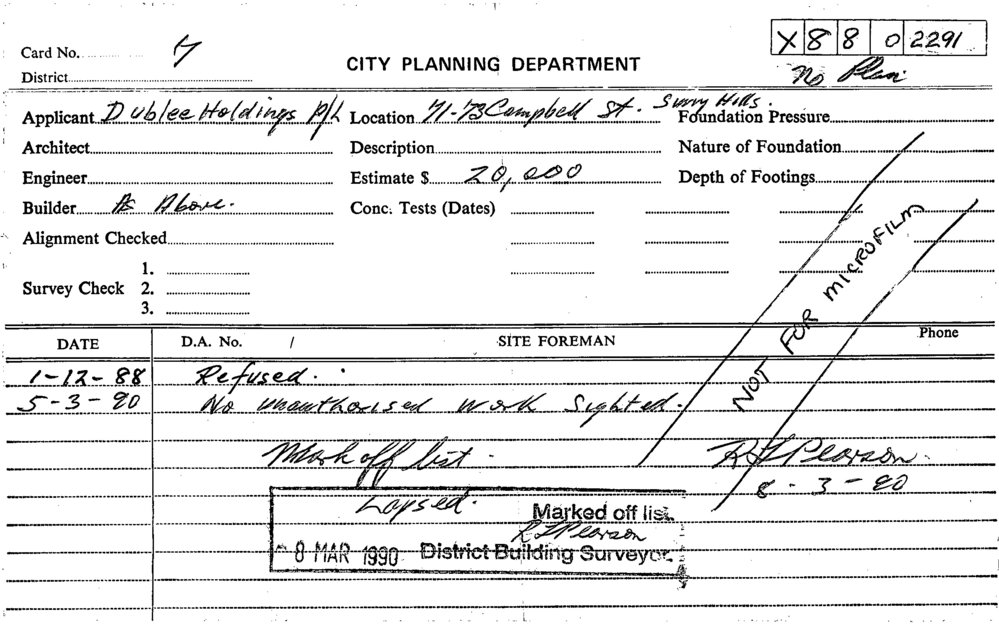 X 8 8 0 2291
Card No. 7
CITY PLANNING DEPARTMENT
No Plan
District
Applicant Dublee Holdings P/L Location 71-73 Campbell St. Surry Hills. Foundation Pressure
Architect Description Nature of Foundation
Engineer Estimate $ 20,000 Depth of Footings
Builder As Above. Conc. Tests (Dates)
Alignment Checked
1.
Survey Check 2.
3.
NOT FOR MICROFILM
DATE D.A. No. / SITE FOREMAN Phone
1-12-88 Refused.
5-3-90 No unauthorised work Sighted.
Mark off list. R L Pearson.
8-3-90
Lapsed. Marked off list.
R L Pearson
8 MAR 1990 District Building Surveyor.